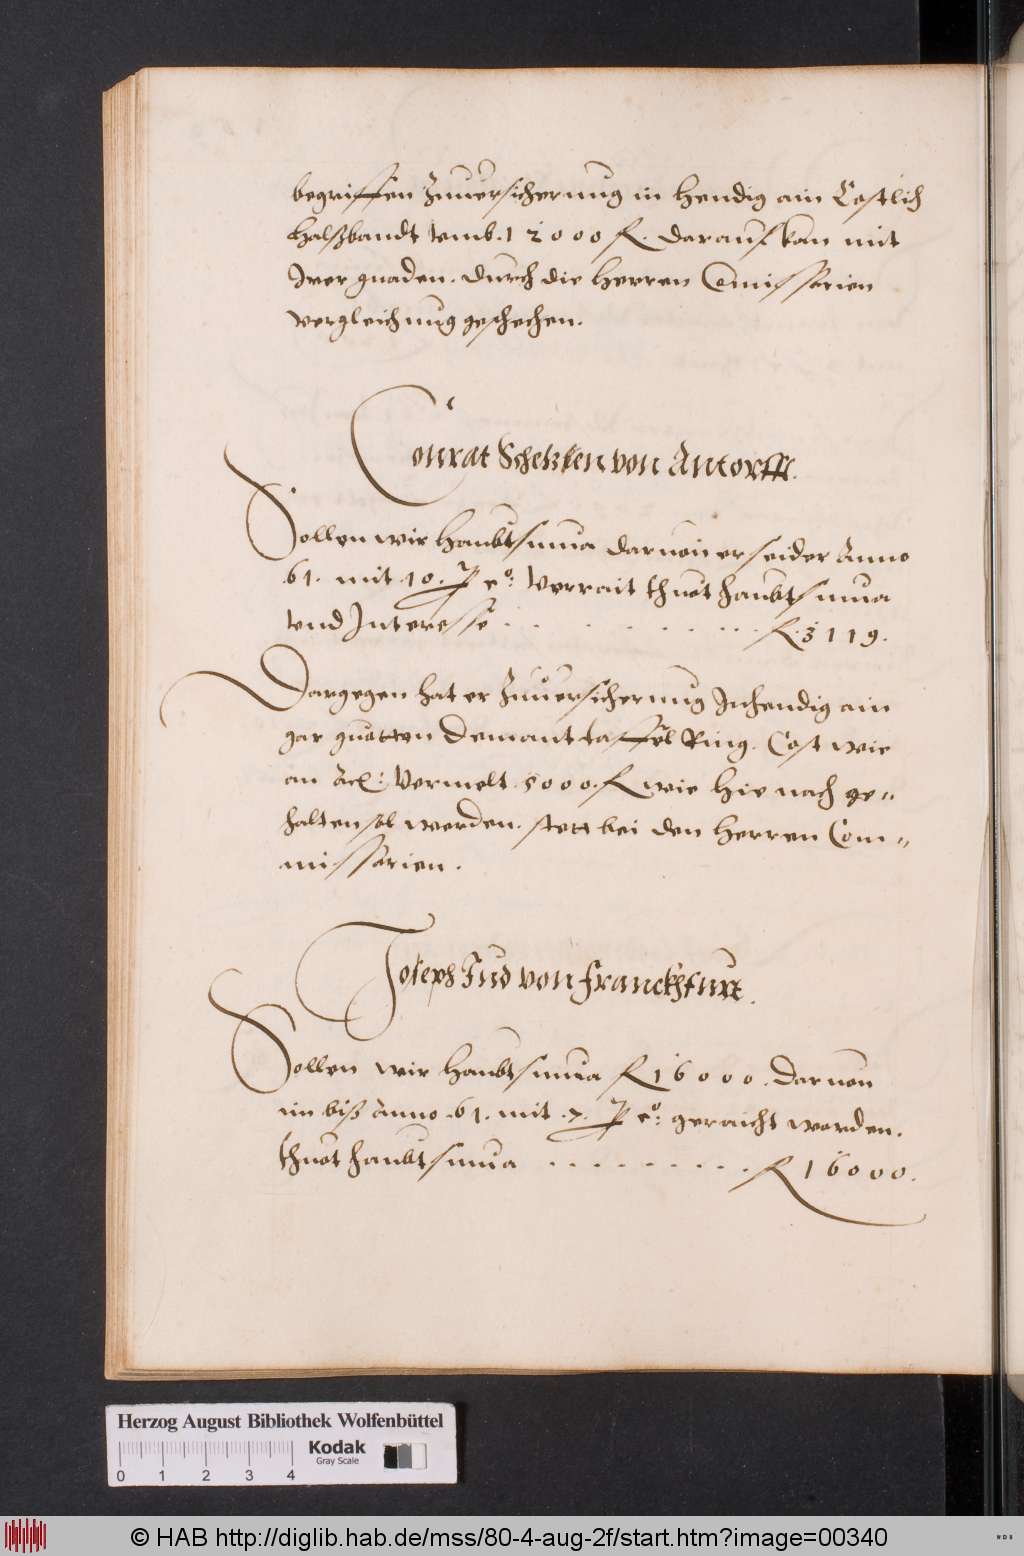 begriffen Zuuersicherung in hendig ain Costlich
halßbandt vmb. 12000 fl. darauf kan mit
Irer gnaden. durch die Herren Comissarien
vergleichung geschechen.
Conrat Schetzlen von Antorff.
Sollen wir Haubtsuma daruon er seider Anno
61. mit 10. p co: Verrait thuet haubtsuma
vnd Interesse . . . . . . . . fl. 3119.
Dargegen hat er Zuuersicherung Inhendig ain
gar guetten Demant taffel Ring. Cost wie
an Acl: Vermelt. 5000. fl wie hie nach ge„
halten sol werden. stett bei den Herren Com„
missarien.
Joseph Jud von Franckhfurt.
Sollen wir Haubtsuma fl 16000. daruon
im biß Anno .61. mit .7. p co: geraicht worden.
thuet haubtsuma . . . . . . . . . fl 16000.
Herzog August Bibliothek Wolfenbüttel
Kodak
Gray Scale
0 1 2 3 4
© HAB http://diglib.hab.de/mss/80-4-aug-2f/start.htm?image=00340